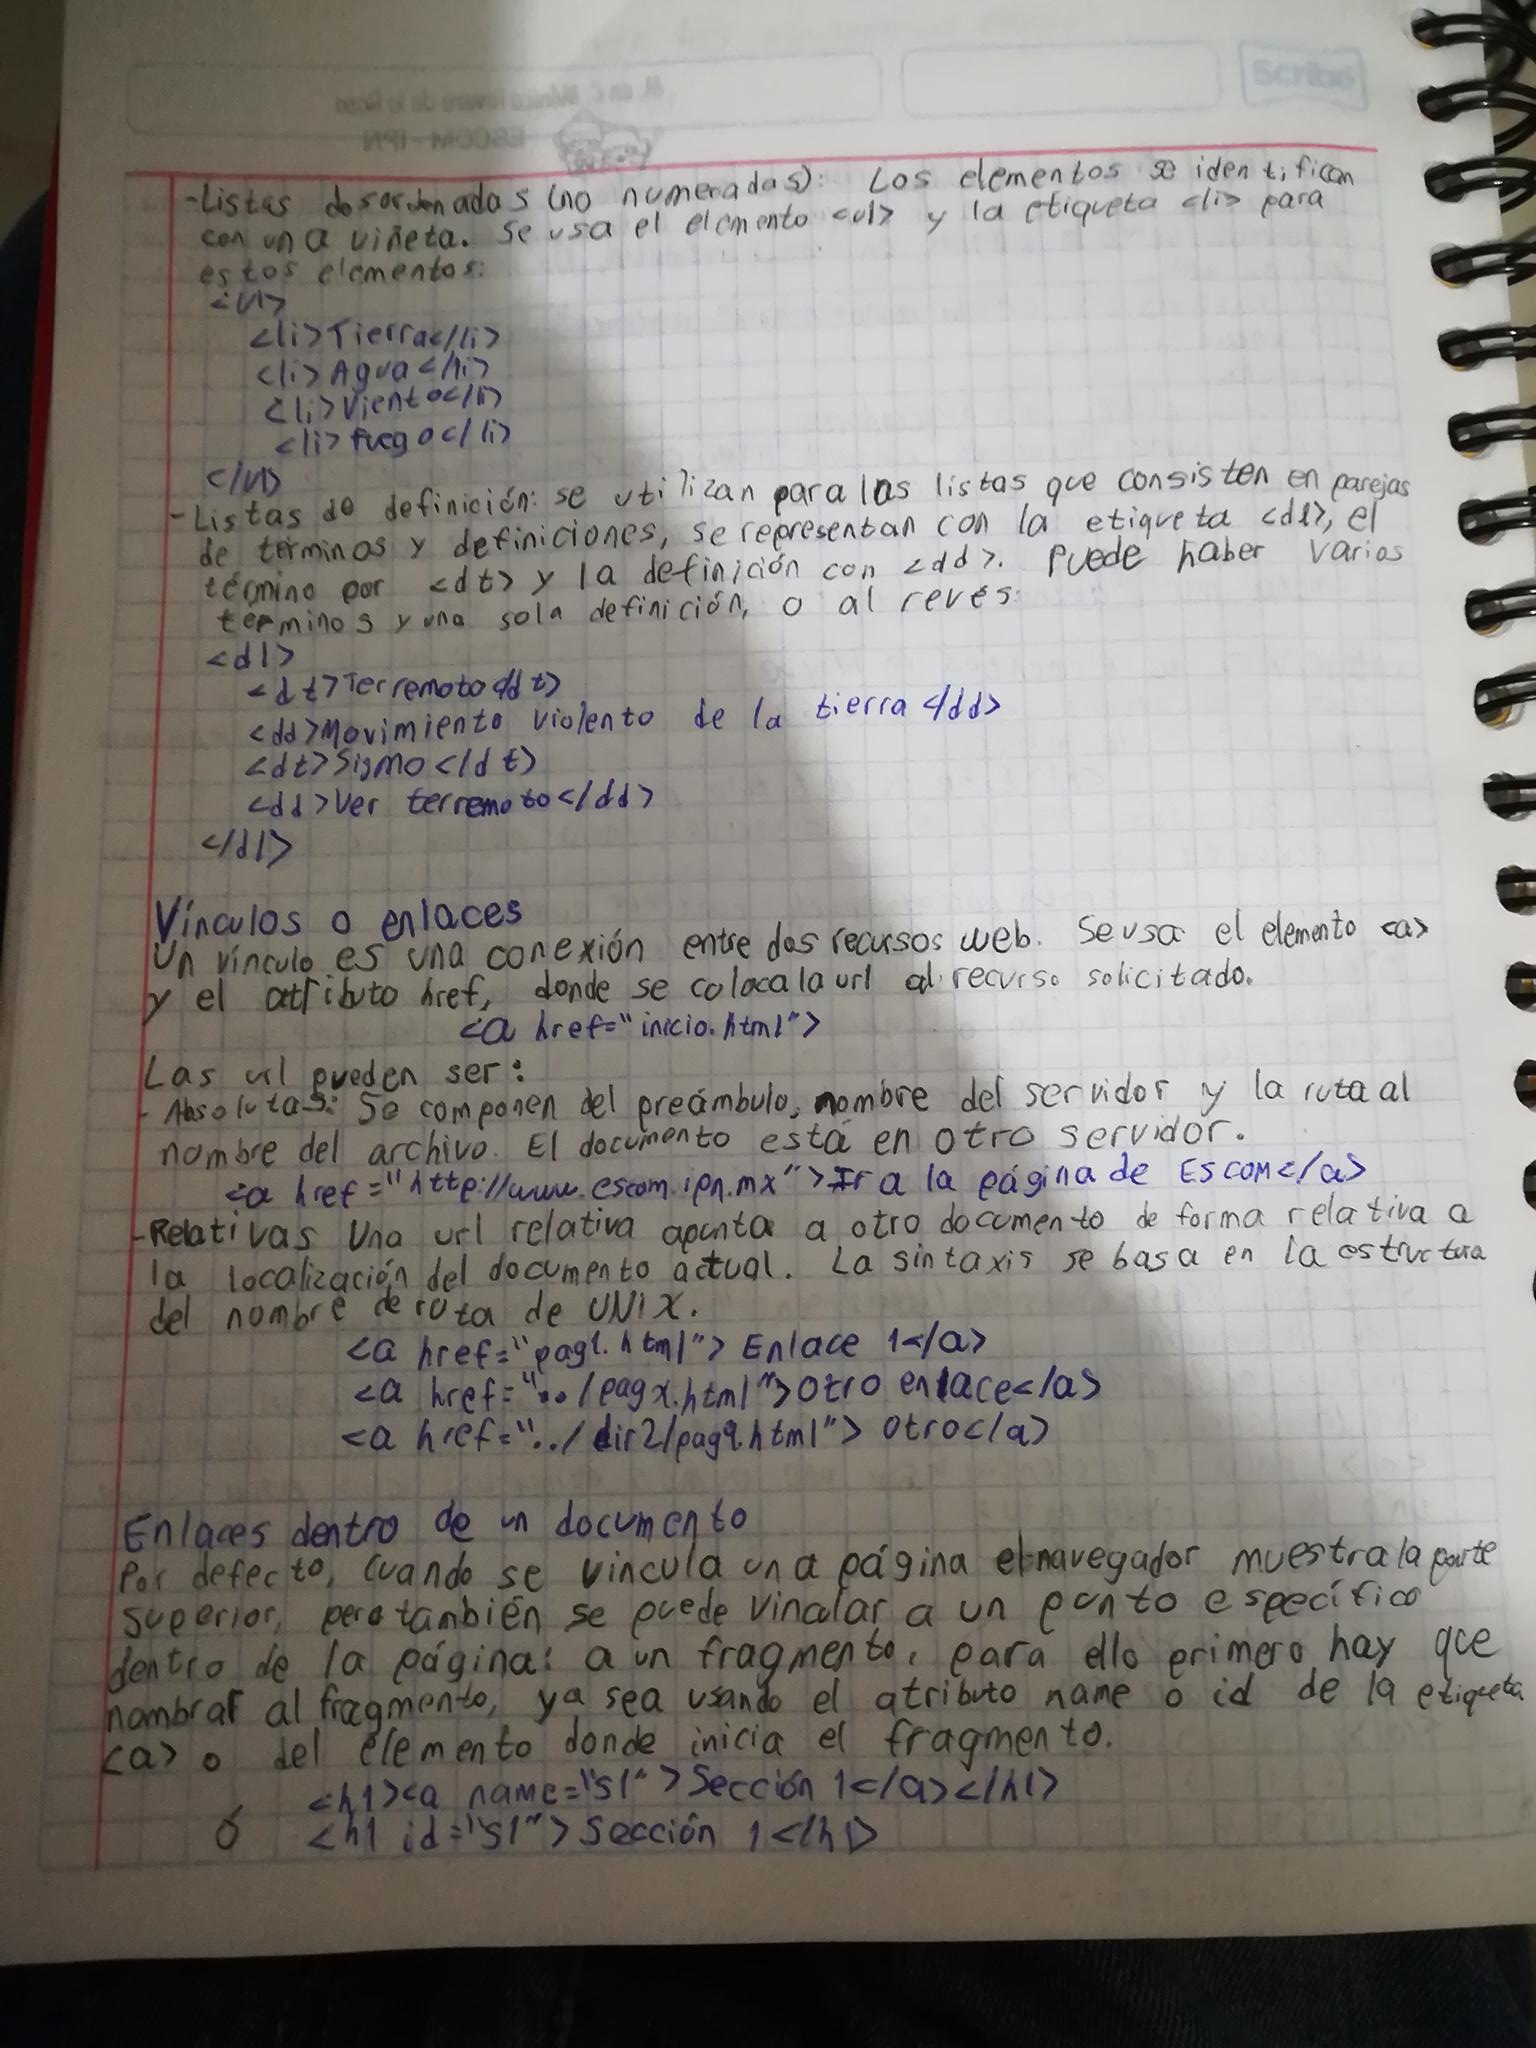 Scribe
M. en C. Mónica Rivera de la Rosa
ESCOM - IPN
-Listas desordenadas (no numeradas): Los elementos se identifican
con una viñeta. Se usa el elemento <ul> y la etiqueta <li> para
estos elementos:
<ul>
<li>Tierra</li>
<li>Agua</li>
<li>Viento</li>
<li>fuego</li>
</ul>
-Listas de definición: se utilizan para las listas que consisten en parejas
de términos y definiciones, se representan con la etiqueta <dl>, el
término por <dt> y la definición con <dd>. Puede haber varios
terminos y una sola definición, o al revés:
<dl>
<dt>Terremoto</dt>
<dd>Movimiento violento de la tierra</dd>
<dt>Sismo</dt>
<dd>Ver terremoto</dd>
</dl>
Vínculos o enlaces
Un vínculo es una conexión entre dos recursos web. Se usa el elemento <a>
y el atributo href, donde se coloca la url al recurso solicitado.
<a href="inicio.html">
Las url pueden ser:
- Absolutas: Se componen del preámbulo, nombre del servidor y la ruta al
nombre del archivo. El documento está en otro servidor.
<a href="http://www.escom.ipn.mx">Ir a la página de ESCOM</a>
-Relativas Una url relativa apunta a otro documento de forma relativa a
la localización del documento actual. La sintaxis se basa en la estructura
del nombre de ruta de UNIX.
<a href="pag1.html"> Enlace 1</a>
<a href="../pagx.html">Otro enlace</a>
<a href="../dir2/pag9.html"> Otro</a>
Enlaces dentro de un documento
Por defecto, cuando se vincula una página el navegador muestra la parte
superior, pero también se puede vincular a un punto específico
dentro de la página: a un fragmento, para ello primero hay que
nombrar al fragmento, ya sea usando el atributo name o id de la etiqueta
<a> o del elemento donde inicia el fragmento.
<h1><a name="s1">Sección 1</a></h1>
ó <h1 id="s1">Sección 1</h1>